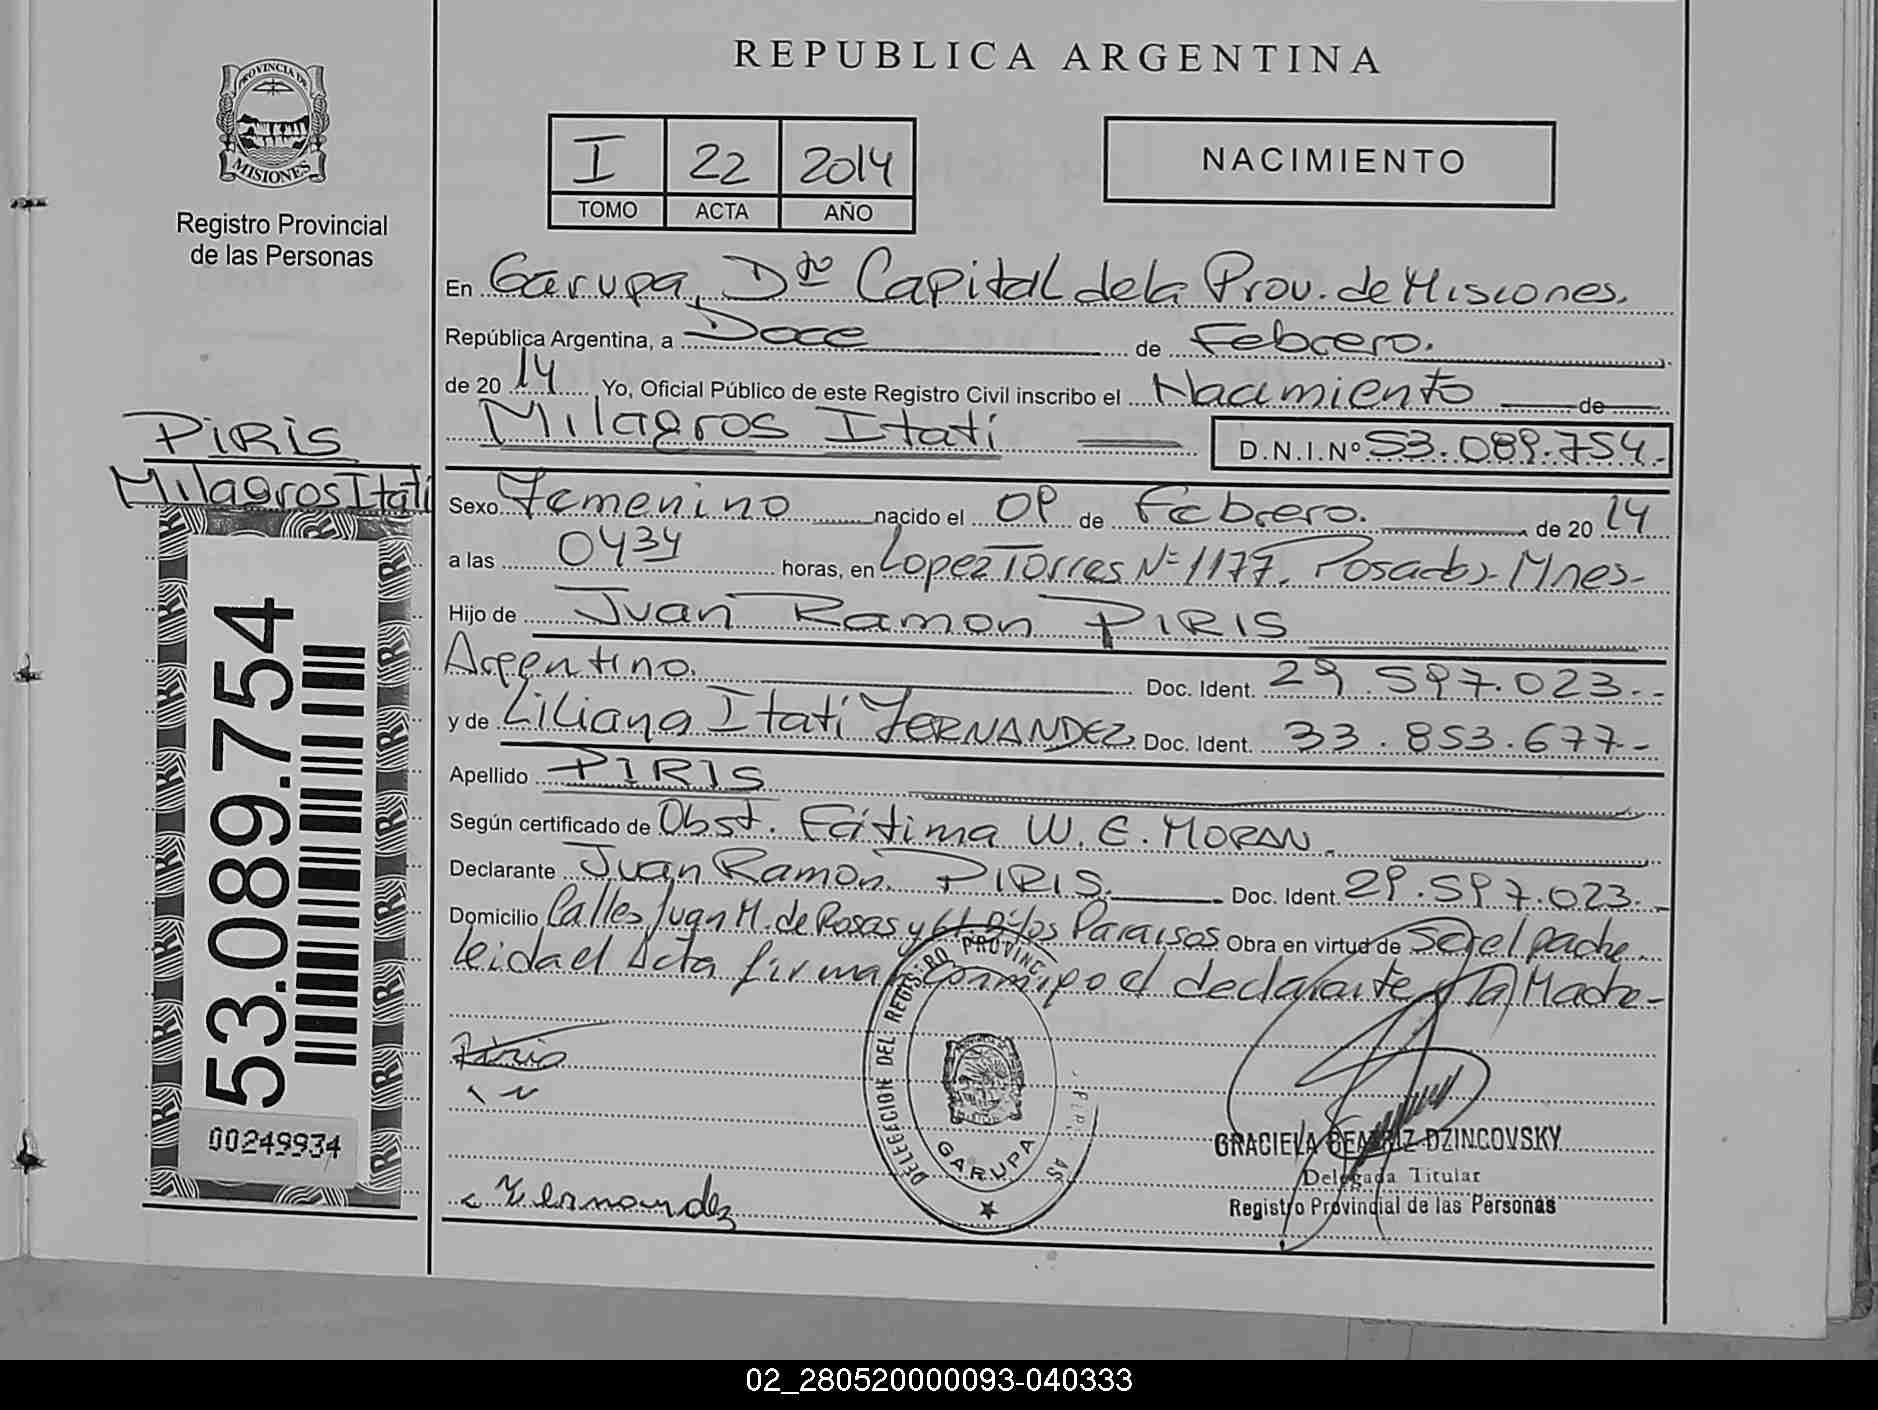 REPUBLICA ARGENTINA
PROVINCIA DE
MISIONES
Registro Provincial
de las Personas
I 22 2014
TOMO ACTA AÑO
NACIMIENTO
En Garupa, Dto Capital de la Prov. de Misiones.
República Argentina, a Doce de Febrero.
de 2014 Yo, Oficial Público de este Registro Civil inscribo el Nacimiento de
Milagros Itatí D.N.I.Nº 53.089.754.-
PIRIS
Milagros Itatí
Sexo Femenino nacido el 09 de Febrero. de 2014
a las 0434 horas, en Lopez Torres Nº 1177. Posadas- Mnes-
Hijo de Juan Ramon PIRIS
Argentino. Doc. Ident. 29.597.023.-
y de Liliana Itatí FERNANDEZ Doc. Ident. 33.853.677-
Apellido PIRIS
Según certificado de Obst. Fátima W. E. MORAN.
Declarante Juan Ramon PIRIS. Doc. Ident. 29.597.023.-
Domicilio Calles Juan M. de Rosas y los Paraisos Obra en virtud de Ser el padre.
leida el Acta firma conmigo el declarante y la Madre-
53.089.754
00249934
Piris
Fernandez
DELEGACION DEL REGISTRO PROVINC
GARUPA
GRACIELA BEATRIZ DZINCOVSKY
Delegada Titular
Registro Provincial de las Personas
02_280520000093-040333